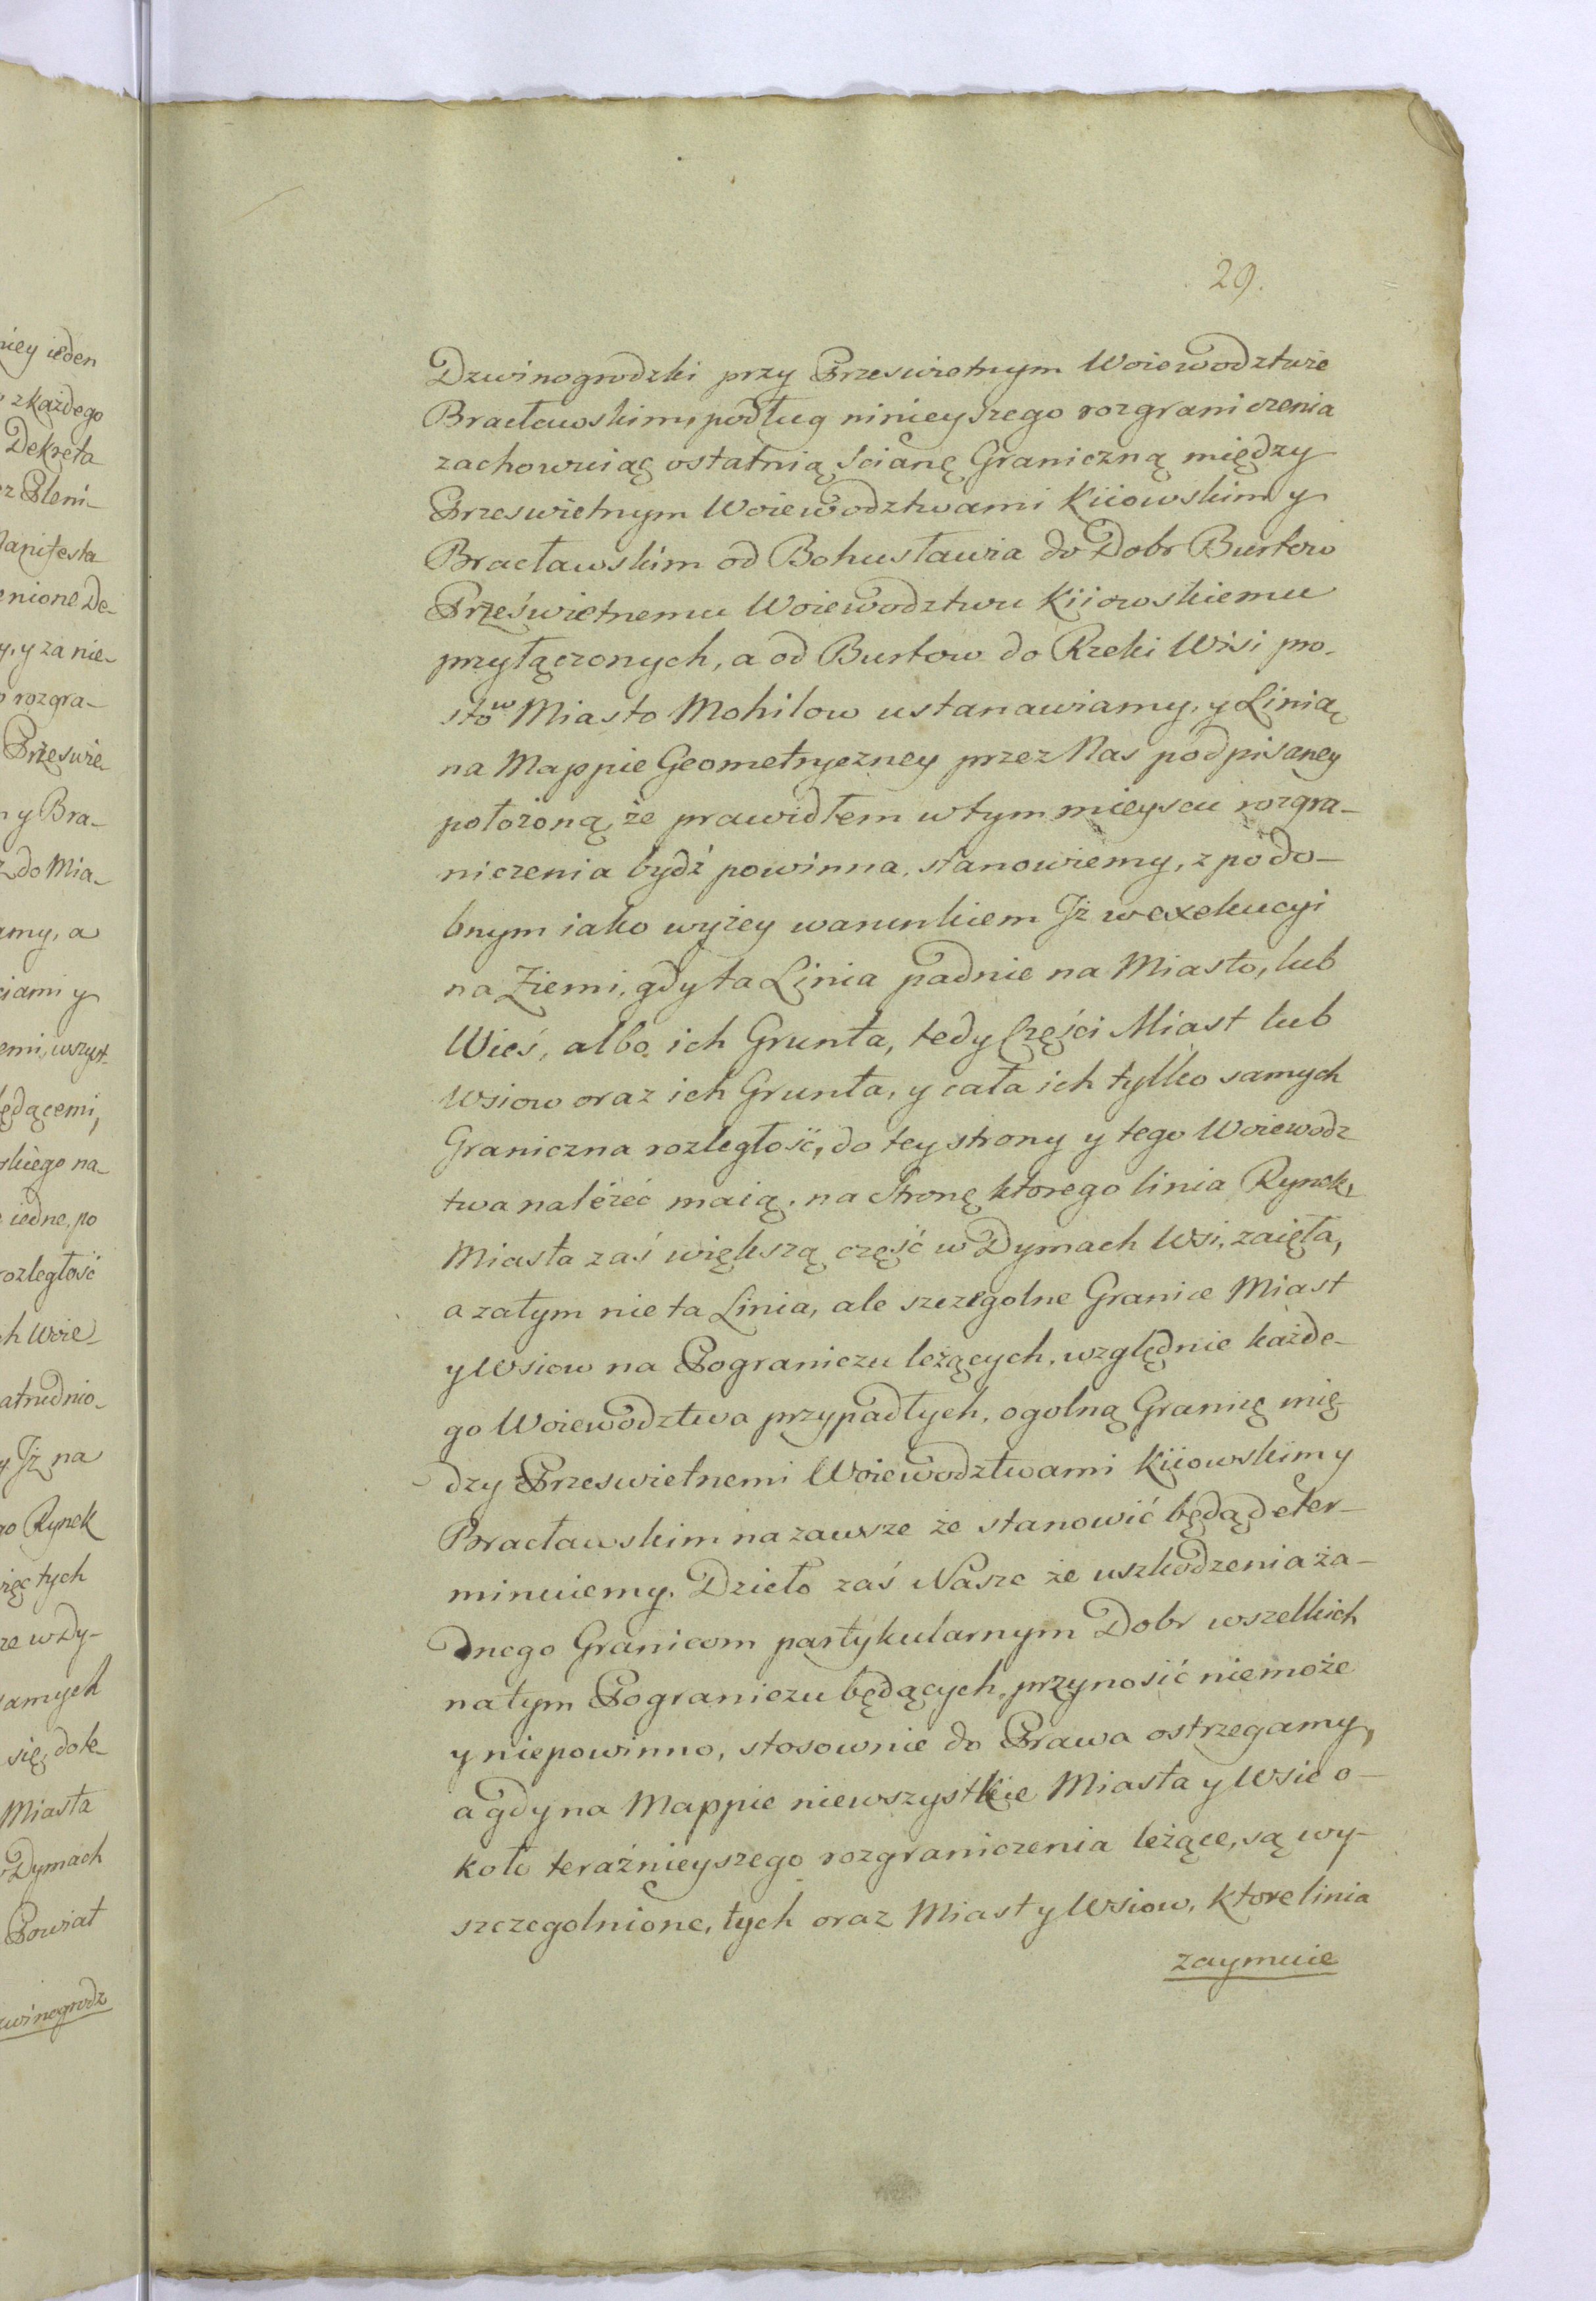 niey ieden
zkażdego
Dekreta
z Pleni-
Manifesta
nione De-
y, y za nie-
rozgra-
Prześwie-
y Bra-
do Mia-
amy, a
ciami y
emi, wszyst-
będącemi,
skiego na-
iedne, po
rozległość
ch Woie-
atrudnio-
y. Jż na
go Rynek
więc tych
ze w Dy-
samych
się, do te-
Miasta
w Dymach
Powiat
zwinogrodz
29.
Dzwinogrodzki przy Przeswietnym Woiewodztwie
Bracławskim, podług ninieyszego rozgraniczenia
zachowuiąc ostatnią ścianę Graniczną między
Przeswietnym Woiewodztwami Kiiowskim y
Bracławskim od Bohusławia do Dobr Burtow
Prześwietnemu Woiewodztwu Kiiowskiemu
przyłączonych, a od Burtow do Rzeki Wisi pro-
sto w Miasto Mohilow ustanawiamy, y Linią
na Mappie Geometryczney przez Nas podpisaney
położoną, że prawidłem w tym mieyscu rozgra-
niczenia bydź powinna, stanowiemy, z podo-
bnym iako wyżey warunkiem Jż w exekucyi
na Ziemi, gdy ta Linia padnie na Miasto, lub
Wieś, albo ich Grunta, tedy Części Miast lub
Wsiow oraz ich Grunta, y cała ich tylko samych
Graniczna rozległość, do tey strony y tego Woiewodz
twa należeć maią, na stronę ktorego linia Rynek,
Miasta zaś większą część w Dymach Wsi, zaięta,
a zatym nie ta Linia, ale szczegolne Granice Miast
y Wsiow na Pograniczu leżących, względnie każde-
go Woiewodztwa przypadłych, ogolną Granię mię-
dzy Przeswietnemi Woiewodztwami Kiiowskim y
Bracławskim na zawsze że stanowić będą, deter-
minuiemy. Dzieło zaś Nasze że uszkodzenia ża-
dnego Granicom partykularnym Dobr wszelkich
na tym Pograniczu będących, przynosić niemoże
y niepowinno, stosownie do Prawa ostrzegamy,
a gdy na Mappie niewszystkie Miasta y Wsie o-
koło teraźnieyszego rozgraniczenia leżące, są wy-
szczegolnione, tych oraz Miast y Wsiow, ktore linia
zaymuie